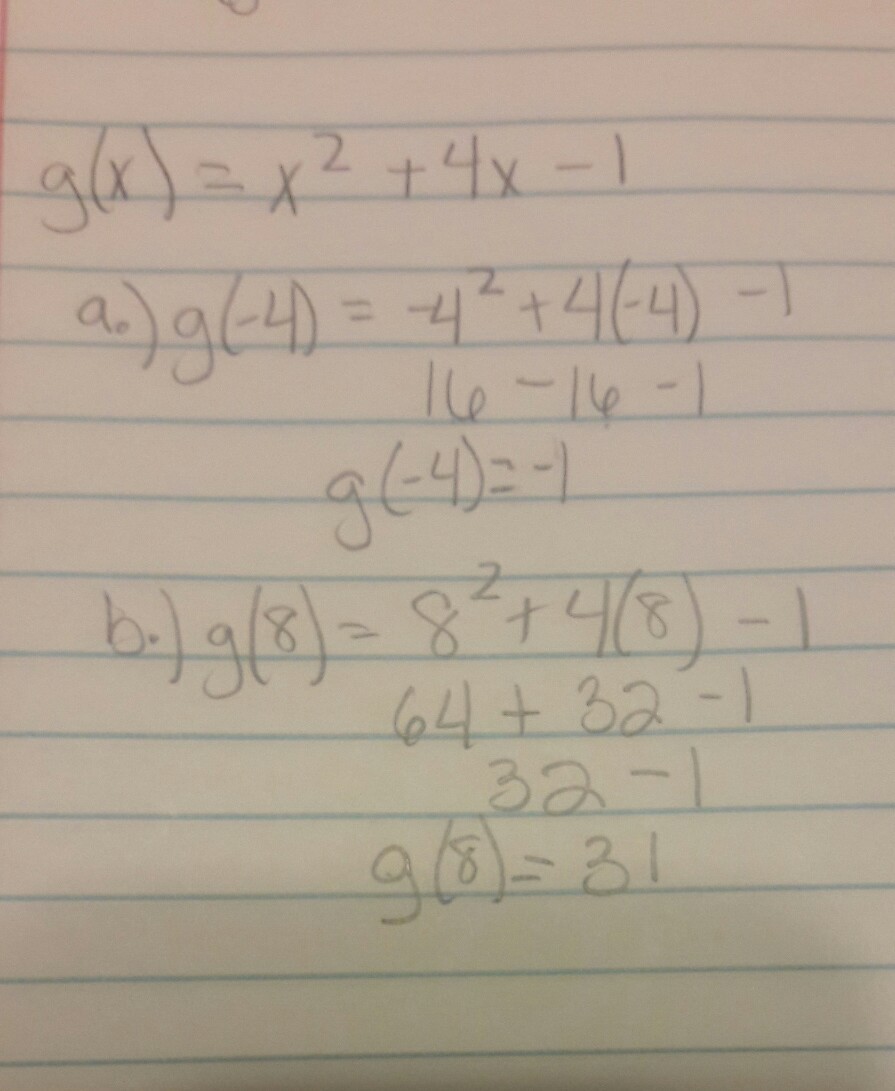 g(x) = x² + 4x - 1
a.) g(-4) = -4² + 4(-4) - 1
16 - 16 - 1
g(-4) = -1
b.) g(8) = 8² + 4(8) - 1
64 + 32 - 1
32 - 1
g(8) = 31